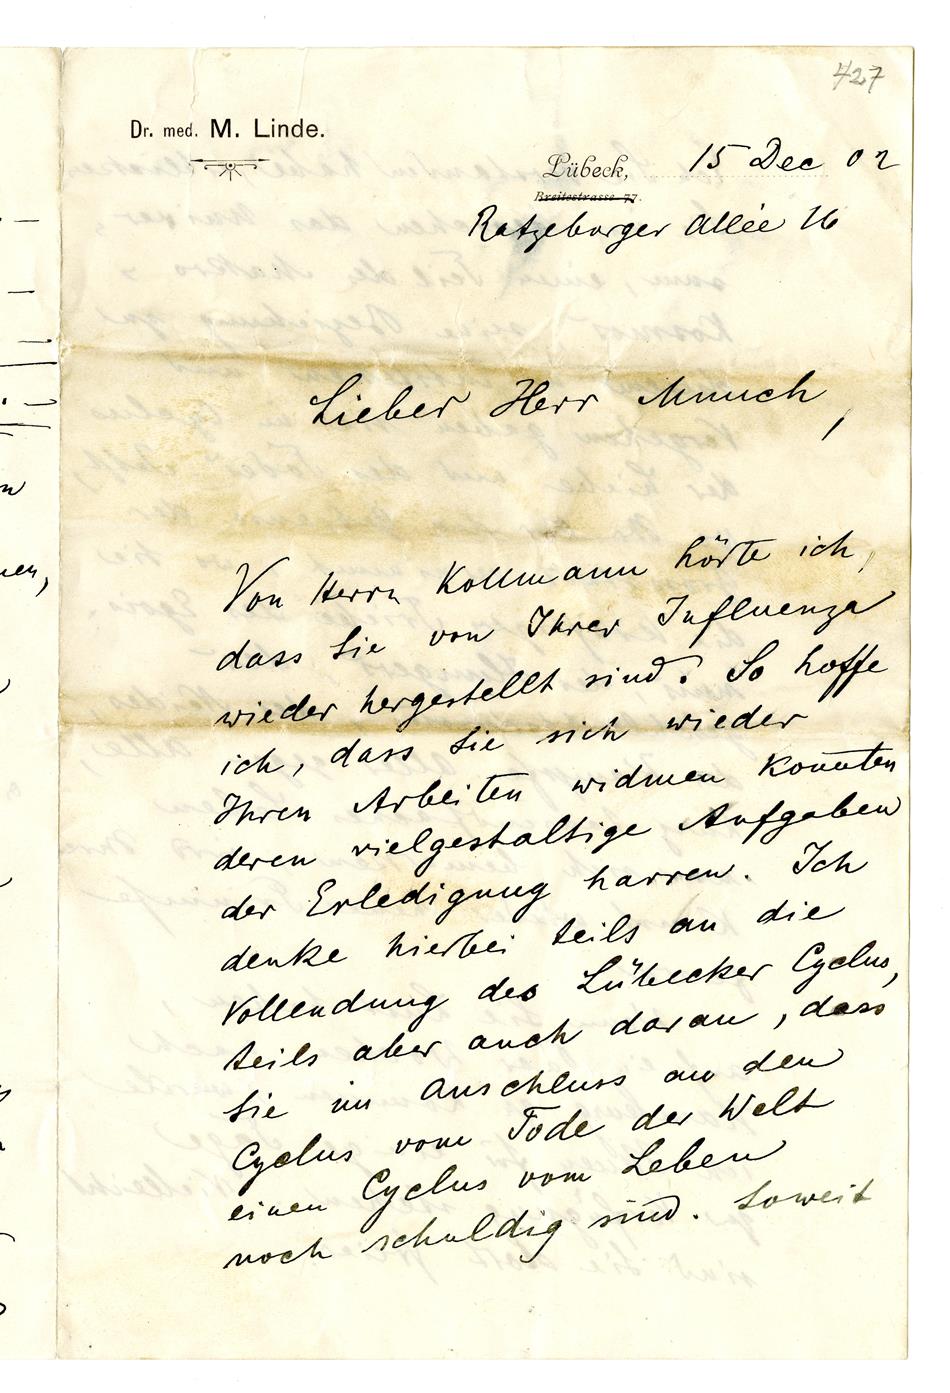 427
Dr. med. M. Linde.
Lübeck, 15 Dec 02
Breitestrasse 77.
Ratzeburger Allée 16
Lieber Herr Munch,
Von Herrn Kollmann hörte ich,
dass Sie von Ihrer Influenza
wieder hergestellt sind. So hoffe
ich, dass Sie sich wieder
Ihren Arbeiten widmen konnten
deren vielgestaltige Aufgaben
der Erledigung harren. Ich
denke hierbei teils an die
Vollendung des Lübecker Cyclus,
teils aber auch daran, dass
Sie im Anschluss an den
Cyclus vom Tode der Welt
einen Cyclus vom Leben
noch schuldig sind. Soweit